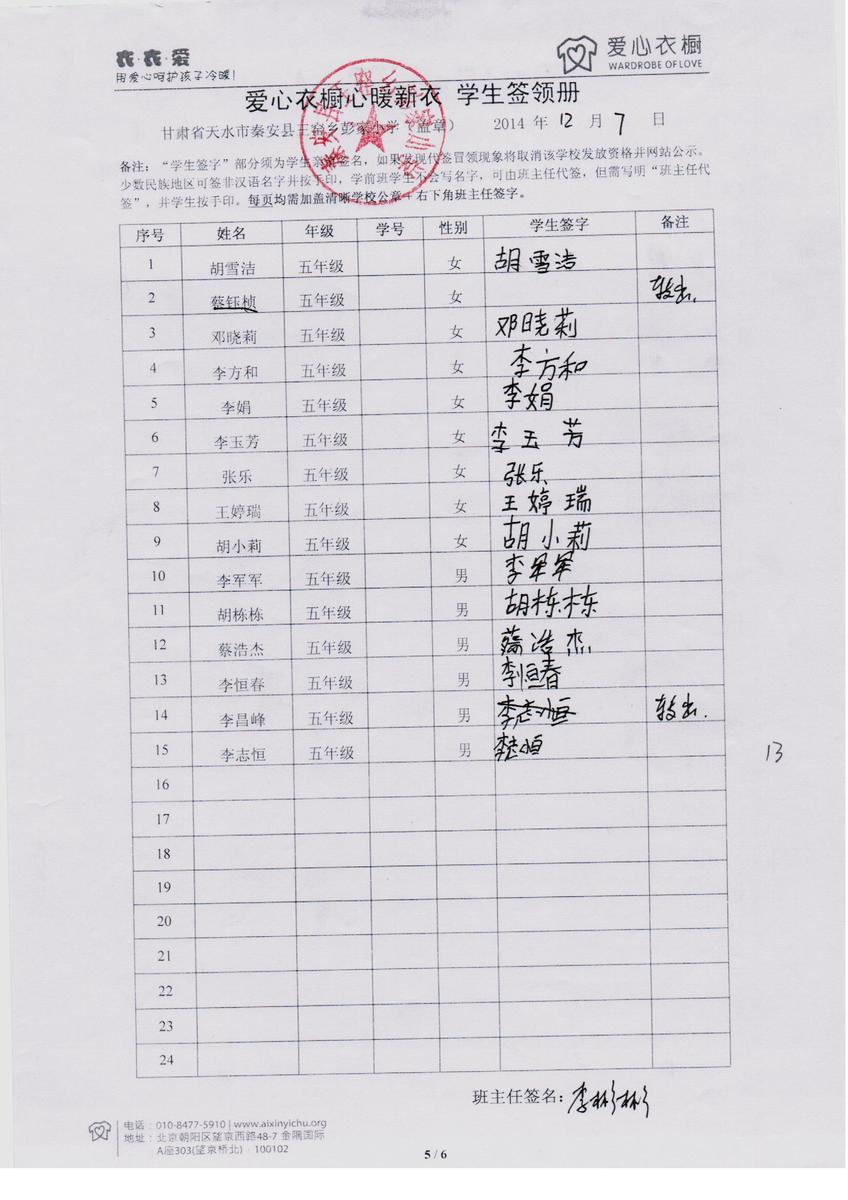 衣·衣·爱
用爱心呵护孩子冷暖!
爱心衣橱
WARDROBE OF LOVE
爱心衣橱心暖新衣 学生签领册
甘肃省天水市秦安县王窑乡彭家小学（盖章） 2014 年 12 月 7 日
备注：“学生签字”部分须为学生亲笔签名，如果发现代签冒领现象将取消该学校发放资格并网站公示。
少数民族地区可签非汉语名字并按手印，学前班学生不会写名字，可由班主任代签，但需写明“班主任代
签”，并学生按手印。每页均需加盖清晰学校公章+右下角班主任签字。
序号 姓名 年级 学号 性别 学生签字 备注
1 胡雪洁 五年级 女 胡雪洁
2 蔡钰桢 五年级 女 转出.
3 邓晓莉 五年级 女 邓晓莉
4 李方和 五年级 女 李方和
5 李娟 五年级 女 李娟
6 李玉芳 五年级 女 李玉芳
7 张乐 五年级 女 张乐
8 王婷瑞 五年级 女 王婷瑞
9 胡小莉 五年级 女 胡小莉
10 李军军 五年级 男 李军军
11 胡栋栋 五年级 男 胡栋栋
12 蔡浩杰 五年级 男 浩杰
13 李恒春 五年级 男 李恒春
14 李昌峰 五年级 男 李志恒 转出.
15 李志恒 五年级 男 李志恒
13
16
17
18
19
20
21
22
23
24
班主任签名：李彬彬
电话：010-8477-5910 | www.aixinyichu.org
地址：北京朝阳区望京西路48-7 金隅国际
A座303(望京桥北) · 100102
5 / 6